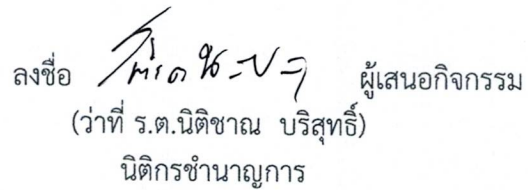 ลงชื่อ ผู้เสนอกิจกรรม
(ว่าที่ ร.ต.นิติชาณ บริสุทธิ์)
นิติกรชำนาญการ